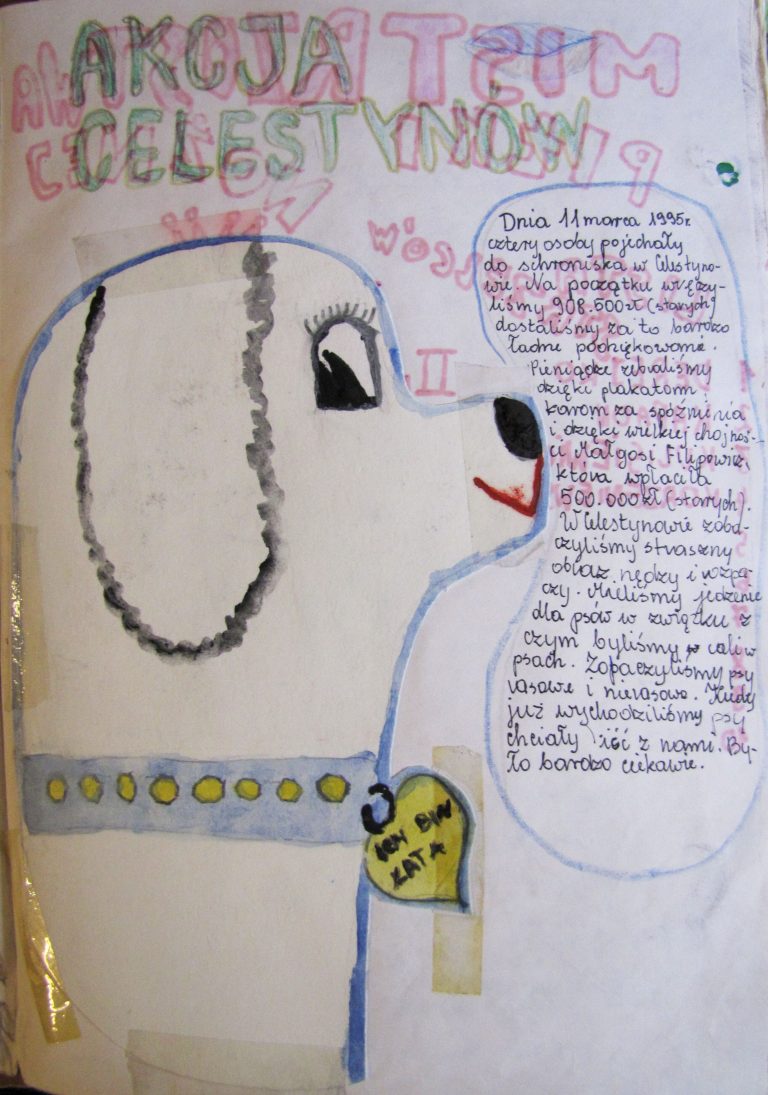 AKCJA
CELESTYNÓW
Dnia 11 marca 1995r.
cztery osoby pojechały
do schroniska w Celestyno-
wie. Na początku wręczy-
liśmy 908.500 zł (starych)
dostaliśmy za to bardzo
ładne podziękowanie.
Pieniądze zebraliśmy
dzięki plakatom
karom za spóźnienia
i dzięki wielkiej chojnoś-
ci Małgosi Filipowicz,
która wpłaciła
500.000zł (starych).
W Celestynowie zoba-
czyliśmy straszny
obraz nędzy i rozpa-
czy. Mieliśmy jedzenie
dla psów w związku z
czym byliśmy cali w
psach. Zobaczyliśmy psy
rasowe i nierasowe. Kiedy
już wychodziliśmy psy
chciały iść z nami. By-
ło bardzo ciekawie.
II
ICH BIN
ŁATA